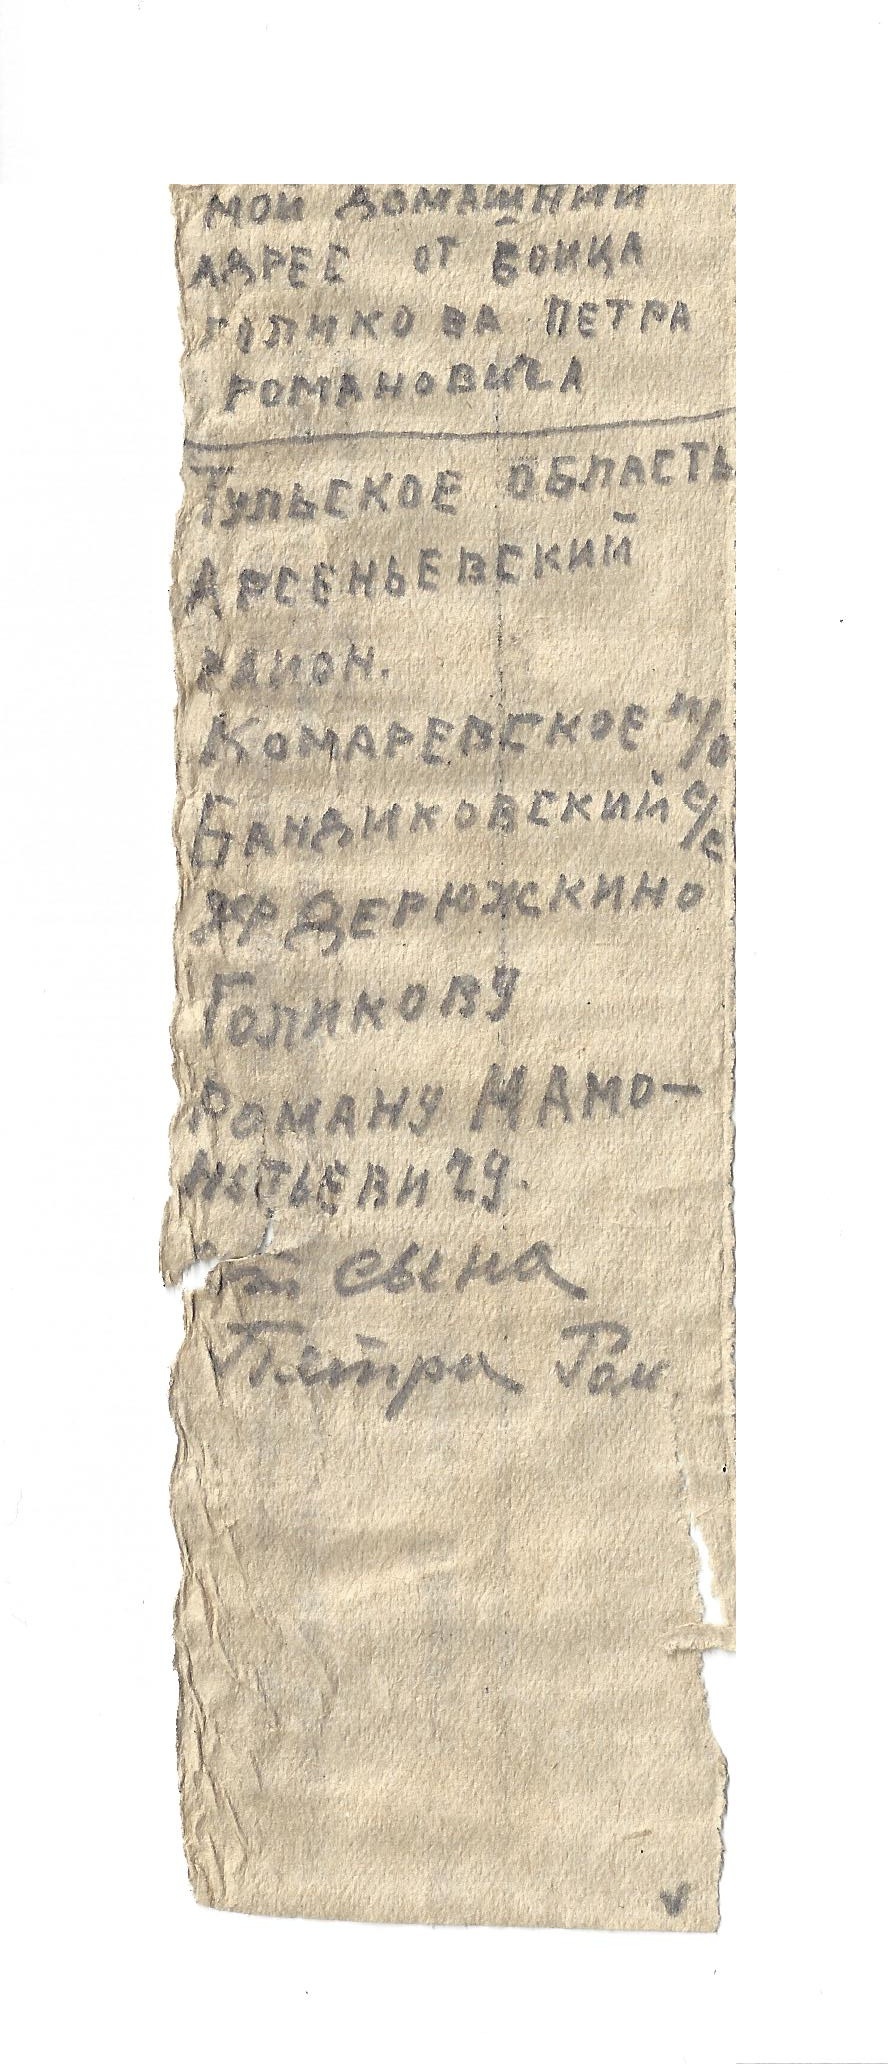 МОЙ ДОМАШНИЙ
АДРЕЕ ОТ БОЙЦА
ГОЛИКОВА ПЕТРА
РОМАНОВИЧА
ТУЛЬСКОЕ ОБЛАСТЬ
АРСЕНЬЕВСКИЙ
РАИОН.
КОМАРЕВСКОЕ П/О
БАНДИКОВСКИЙ С/С
ДЕРЮЖКИНО
ГОЛИКОВУ
РОМАНУ МАМО-
НЬТЬЕВИЧУ.
от сына
Петра Ром